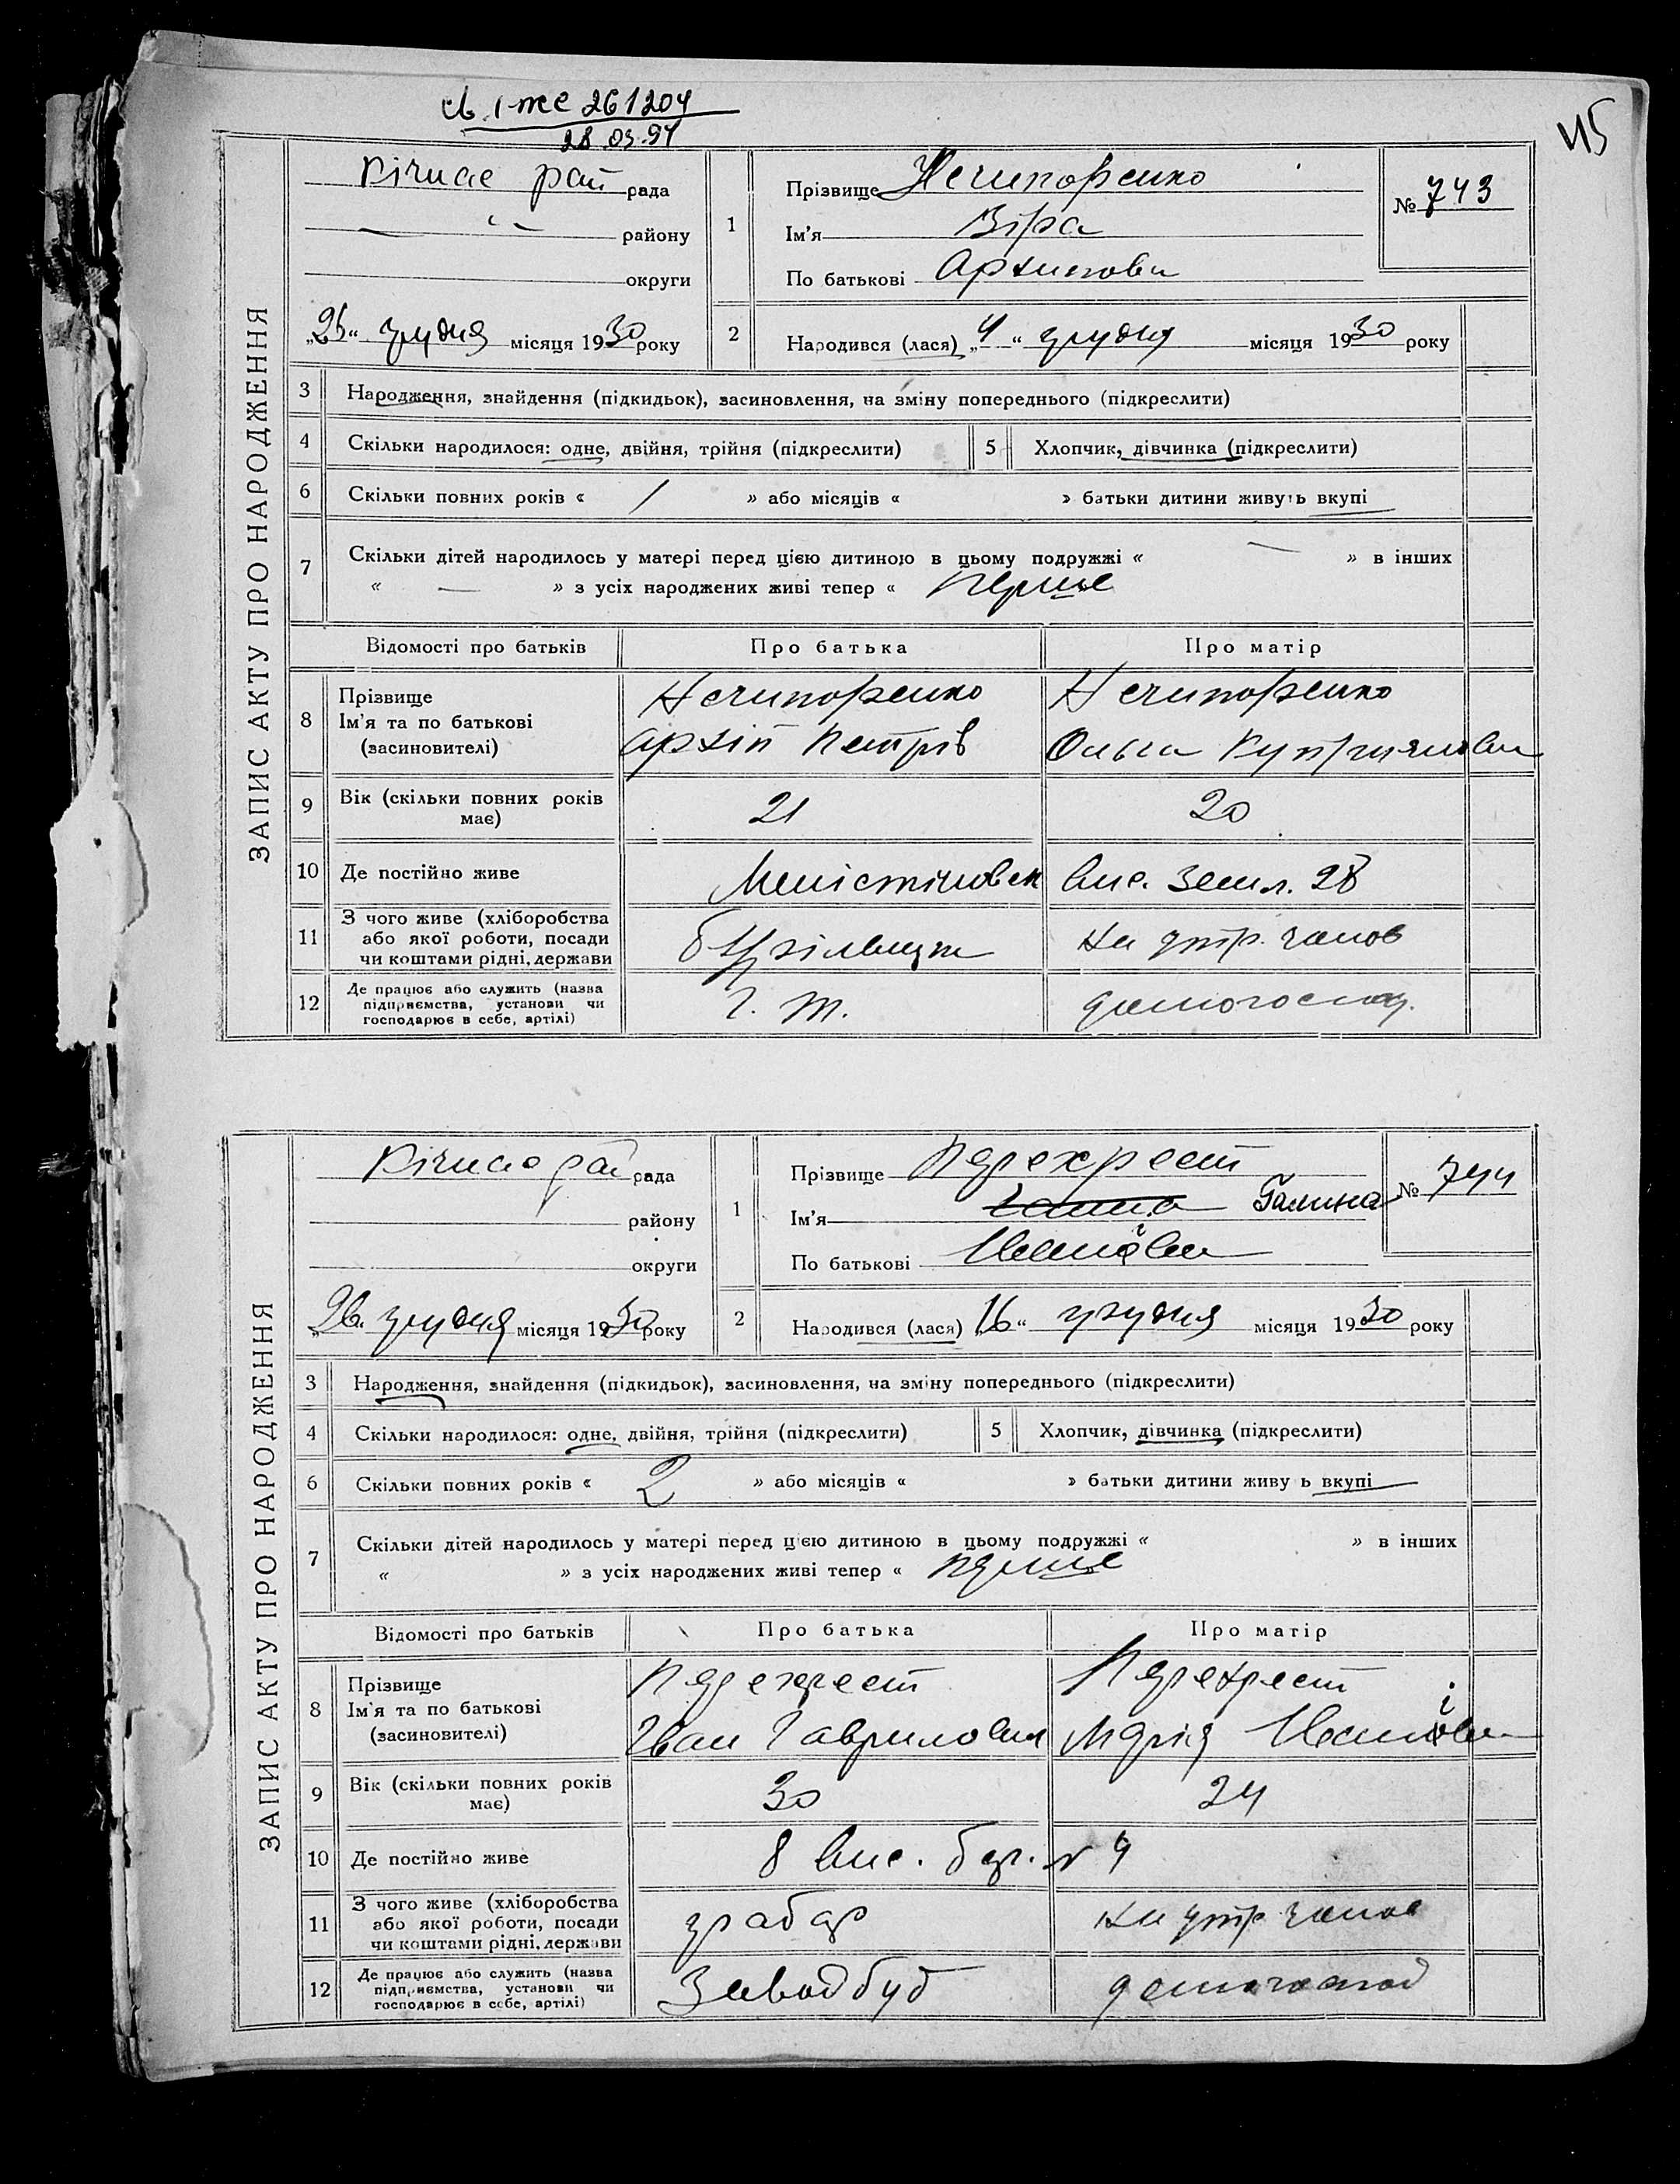 261204
28.03.97
45
ЗАПИС АКТУ ПРО НАРОДЖЕННЯ
Річне рай рада
району
округи
„25“ грудня місяця 1930 року
1
Прізвище Нечипоренко
Ім'я Віра
По батькові Архипови
№ 743
2
Народився (лася) „4“ грудня місяця 1930 року
3 Народження, знайдення (підкидьок), засиновлення, на зміну попереднього (підкреслити)
4 Скільки народилося: одне, двійня, трійня (підкреслити) 5 Хлопчик, дівчинка (підкреслити)
6 Скільки повних років « 1 » або місяців « » батьки дитини живуть вкупі
7 Скільки дітей народилось у матері перед цією дитиною в цьому подружжі « — » в інших
« — » з усіх народжених живі тепер « перше
Відомості про батьків Про батька Про матір
8 Прізвище Нечипоренко Нечипоренко
Ім'я та по батькові Архіп Петрів Ольга Купріянови
(засиновителі)
9 Вік (скільки повних років має) 21 20
10 Де постійно живе вис. Земл. 28
11 З чого живе (хліборобства
або якої роботи, посади
чи коштами рідні, держави на утр. чолов
12 Де працює або служить (назва
підприємства, установи чи
господарює в себе, артілі) Г. Т. домогоспод.
ЗАПИС АКТУ ПРО НАРОДЖЕННЯ
Річне рай рада
району
округи
„26“ грудня місяця 1930 року
1
Прізвище Перехрест
Ім'я Ганна Галина
По батькові Іванівн
№ 744
2
Народився (лася) „16“ грудня місяця 1930 року
3 Народження, знайдення (підкидьок), засиновлення, на зміну попереднього (підкреслити)
4 Скільки народилося: одне, двійня, трійня (підкреслити) 5 Хлопчик, дівчинка (підкреслити)
6 Скільки повних років « 2 » або місяців « » батьки дитини живу ь вкупі
7 Скільки дітей народилось у матері перед цією дитиною в цьому подружжі « » в інших
« » з усіх народжених живі тепер « перше
Відомості про батьків Про батька Про матір
8 Прізвище Перехрест Перехрест
Ім'я та по батькові Іван Гаврилович Марія Іванівн
(засиновителі)
9 Вік (скільки повних років має) 30 24
10 Де постійно живе 8 вис. бар. № 4
11 З чого живе (хліборобства
або якої роботи, посади
чи коштами рідні, держави грабар на утр. чолов
12 Де працює або служить (назва
підприємства, установи чи
господарює в себе, артілі) Заводбуд домогоспод